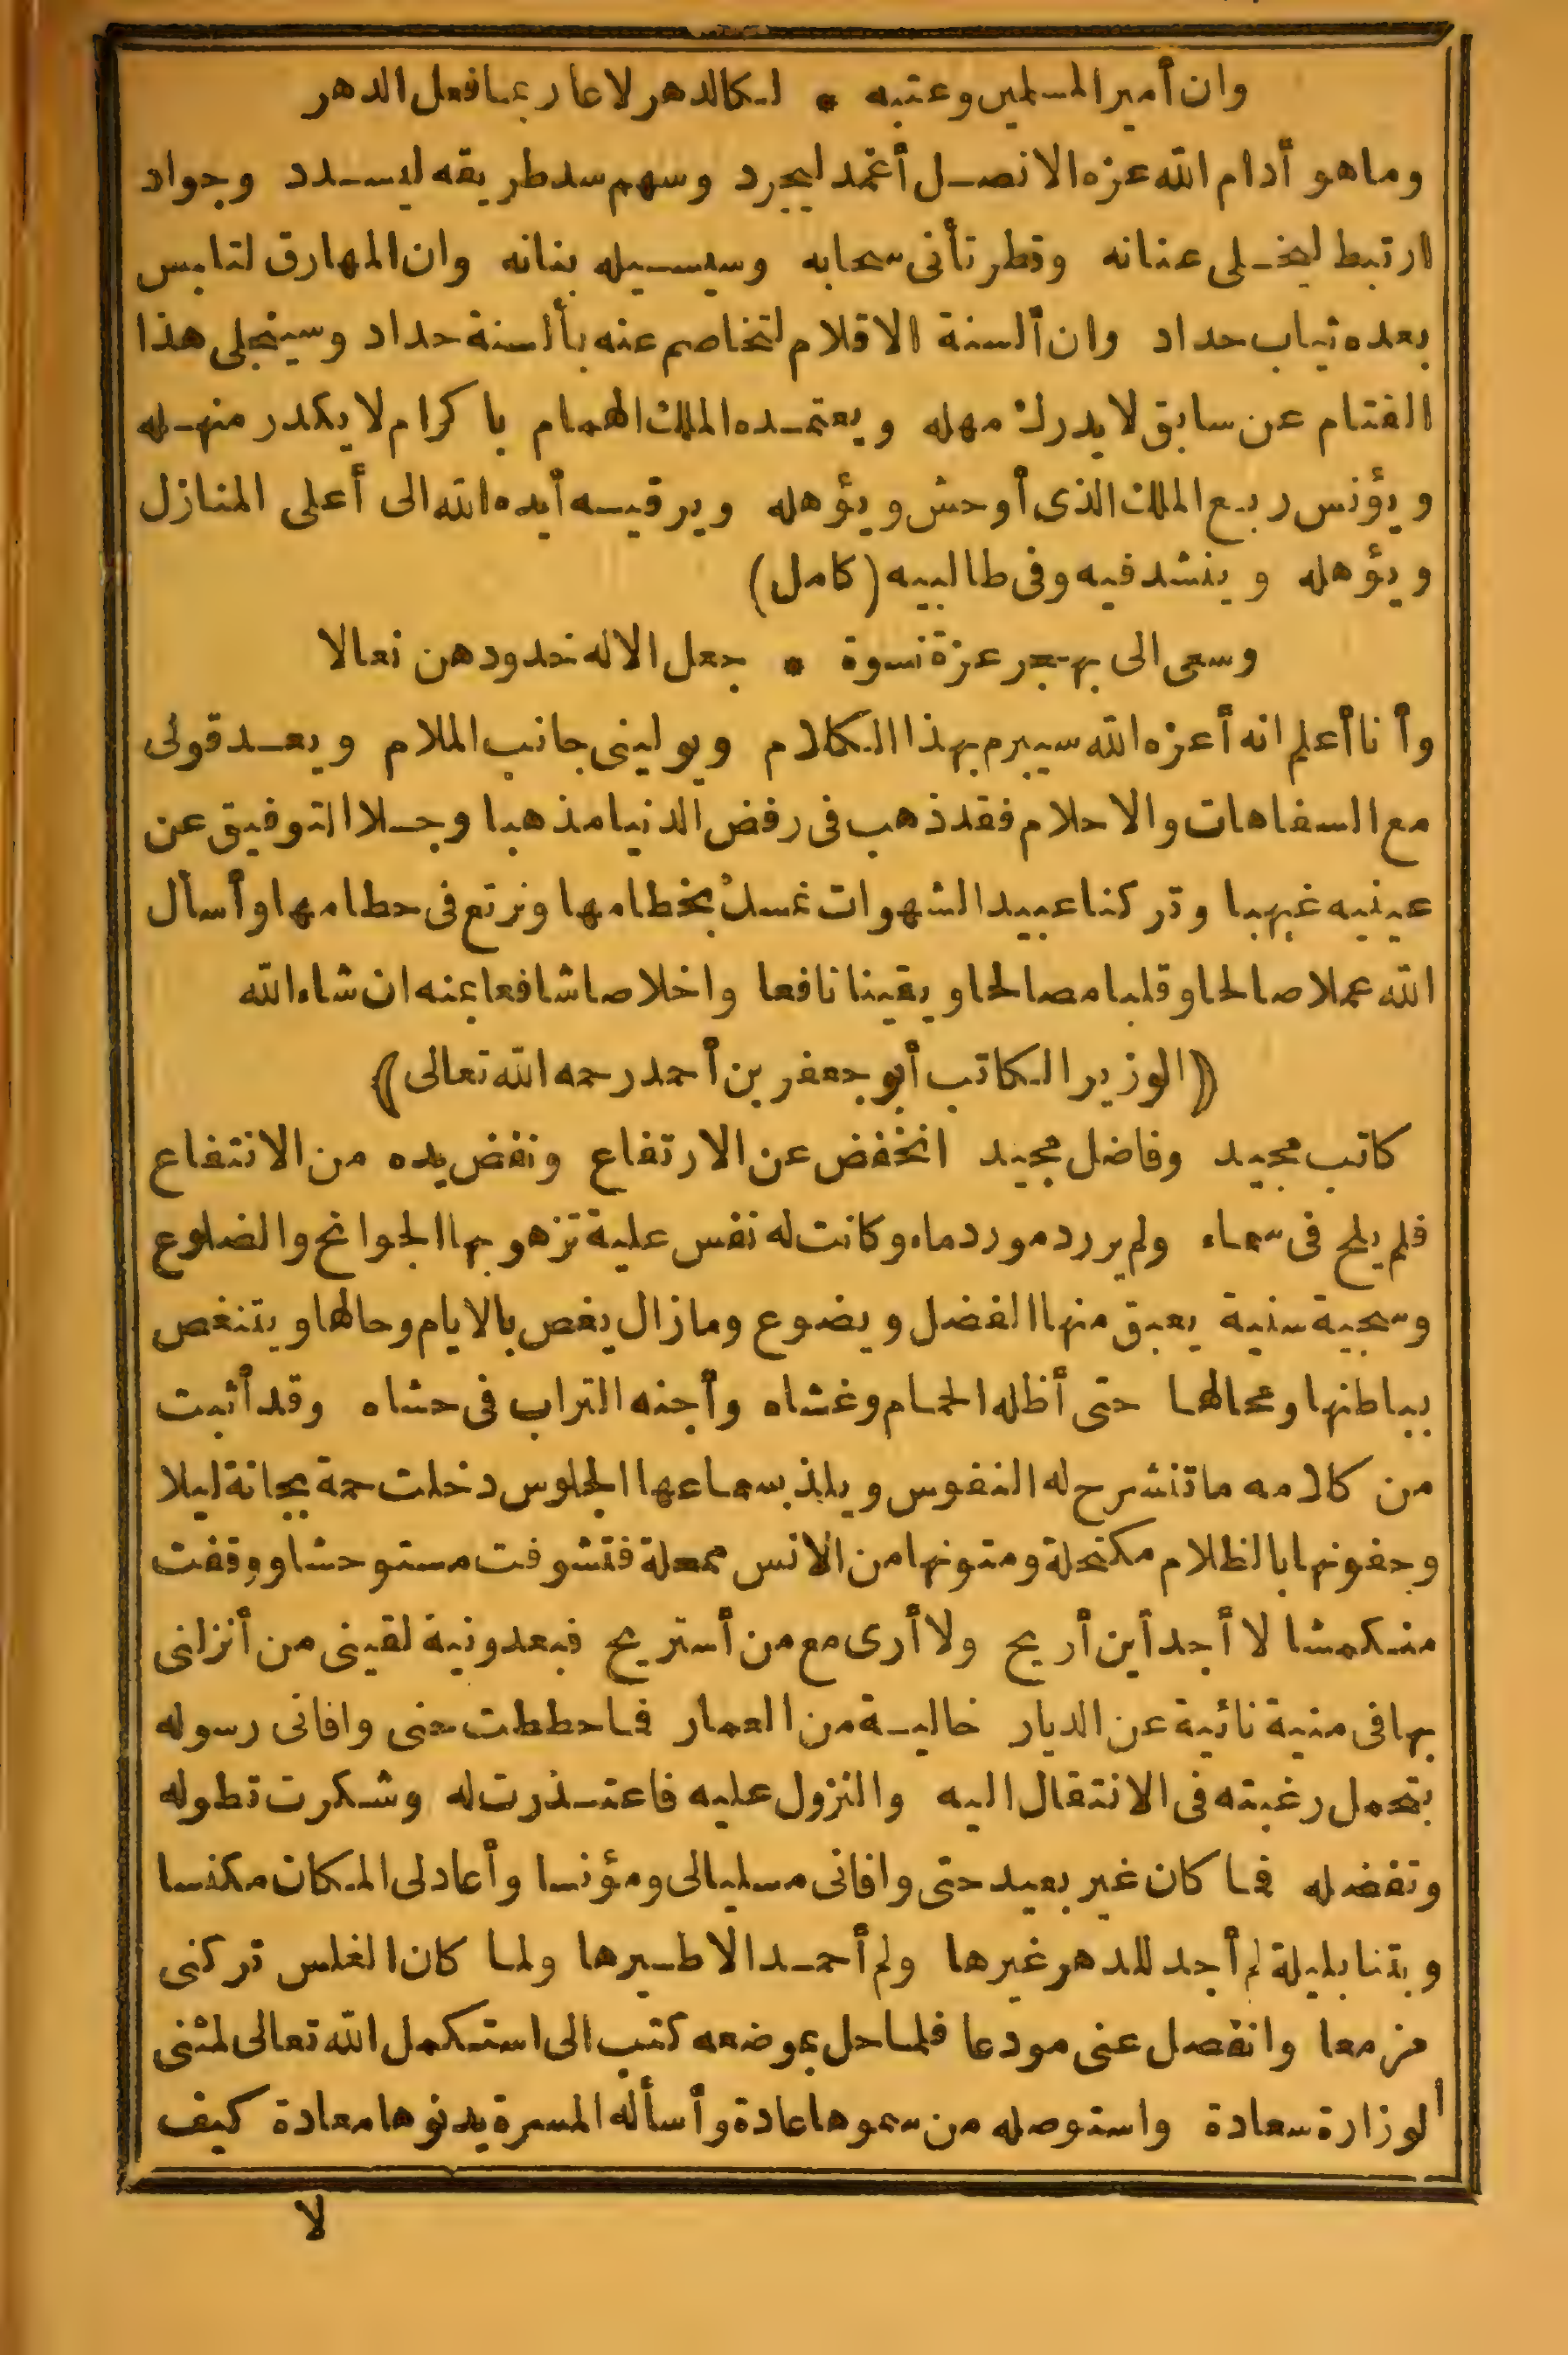 وان أمير المسلمين وعتبه * لكالدهر لا عار بما فعل الدهر
وما هو أدام الله عزه الا نصل أغمد ليجرد وسهم سد طريقه ليسدد وجواد
ارتبط ليخلى عنانه وقطر تأنى سحابه وسيسيله بنانه وان المهارق لتلبس
بعده ثياب حداد وان ألسنة الاقلام لتخاصم عنه بألسنة حداد وسينجلى هذا
القتام عن سابق لا يدرك مهله ويعتمده الملك الهمام باكرام لا يكدر منهله
ويؤنس ربع الملك الذى أوحش ويؤهله ويرقيه أيده الله الى أعلى المنازل
ويؤهله وينشد فيه وفى طالبيه (كامل)
وسعى الى بهجر عزة نسوة * جعل الاله خدودهن نعالا
وأنا أعلم انه أعزه الله سيبرم بهذا الكلام ويولينى جانب الملام ويعد قولى
مع السفاهات والاحلام فقد ذهب فى رفض الدنيا مذهبا وجلا التوفيق عن
عينيه غيهبا وتركنا عبيد الشهوات نمسك بخطامها ونرتع فى حطامها وأسأل
الله عملا صالحا وقلبا مصالحا ويقينا نافعا واخلاصا شافعا بمنه ان شاء الله
(الوزير الكاتب أبو جعفر بن أحمد رحمه الله تعالى)
كاتب مجيد وفاضل مجيد انخفض عن الارتفاع ونفض يده من الانتفاع
فلم يلح فى سماء ولم يرد مورد ماء وكانت له نفس علية تزهو بها الجوانح والضلوع
وسجية سنية يعبق منها الفضل ويضوع وما زال يغص بالايام وحالها ويتنغص
بباطنها ومحالها حتى أظله الحمام وغشاه وأجنه التراب فى حشاه وقد أثبت
من كلامه ما تنشرح له النفوس ويلذ بسماعها الجلوس دخلت حمة بجانة ليلا
وجفونها بالظلام مكتحلة ومتونها من الانس ممحلة فتشوفت مستوحشا ووقفت
منكمشا لا أجد أين أريح ولا أرى مع من أستريح فبعد ونية لقينى من أنزلنى
بها فى منية نائية عن الديار خالية من العمار فما حططت حتى وافانى رسوله
بتحمل رغبته فى الانتقال اليه والنزول عليه فاعتذرت له وشكرت تطوله
وتفضله فما كان غير بعيد حتى وافانى مسليا لى ومؤنسا وأعاد لى المكان مكنسا
وبتنا بليلة لم أجد للدهر غيرها ولم أحمد الا طيرها ولما كان الغلس تركنى
مزمعا وانفصل عنى مودعا فلما حل بموضعه كتب الى استكمل الله تعالى لمثنى
الوزارة سعادة واستوصله من سموها عادة وأسأله المسرة بدنوها معادة كيف
لا